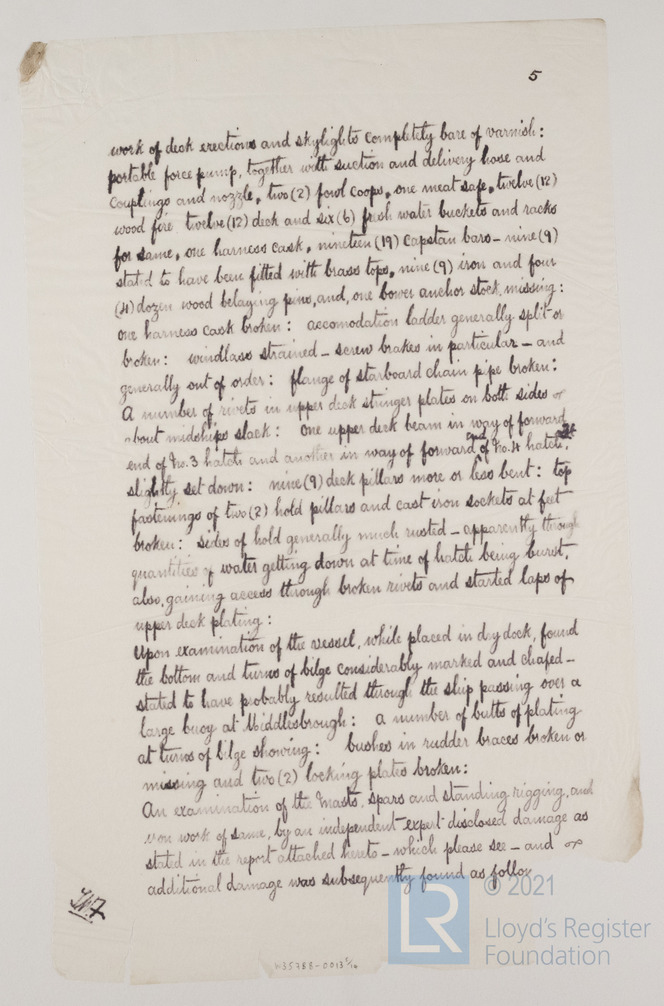 5
work of deck erections and skylights completely bare of varnish:
portable force pump, together with suction and delivery hose and
couplings and nozzle, two (2) fowl coops, one meat safe, twelve (12)
wood fire twelve (12) deck and six (6) fresh water buckets and racks
for same, one harness cask, nineteen (19) capstan bars - nine (9)
stated to have been fitted with brass tops, nine (9) iron and four
(4) dozen wood belaying pins, and, one bower anchor stock, missing:
one harness cask broken: accomodation ladder generally split or
broken: windlass strained - screw brakes in particular - and
generally out of order: flange of starboard chain pipe broken:
A number of rivets in upper deck stringer plates on both sides
about midships slack: one upper deck beam in way of forward
end of No. 3 hatch and another in way of forward end of No. 4 hatch,
slightly set down: nine (9) deck pillars more or less bent: top
fastenings of two (2) hold pillars and cast iron sockets at feet
broken: sides of hold generally much rusted - apparently through
quantities of water getting down at time of hatch being burst,
also, gaining access through broken rivets and started laps of
upper deck plating:
Upon examination of the vessel, while placed in dry dock, found
the bottom and turns of bilge considerably marked and chafed -
stated to have probably resulted through the ship passing over a
large buoy at Middlesbrough: a number of butts of plating
at turns of bilge showing: bushes in rudder braces broken or
missing and two (2) locking plates broken:
An examination of the masts, spars and standing rigging, and
iron work of same, by an independent expert disclosed damage as
stated in the report attached hereto - which please see - and
additional damage was subsequently found as follo
© 2021
LR
Lloyd's Register
Foundation
W35788-0013 5/14